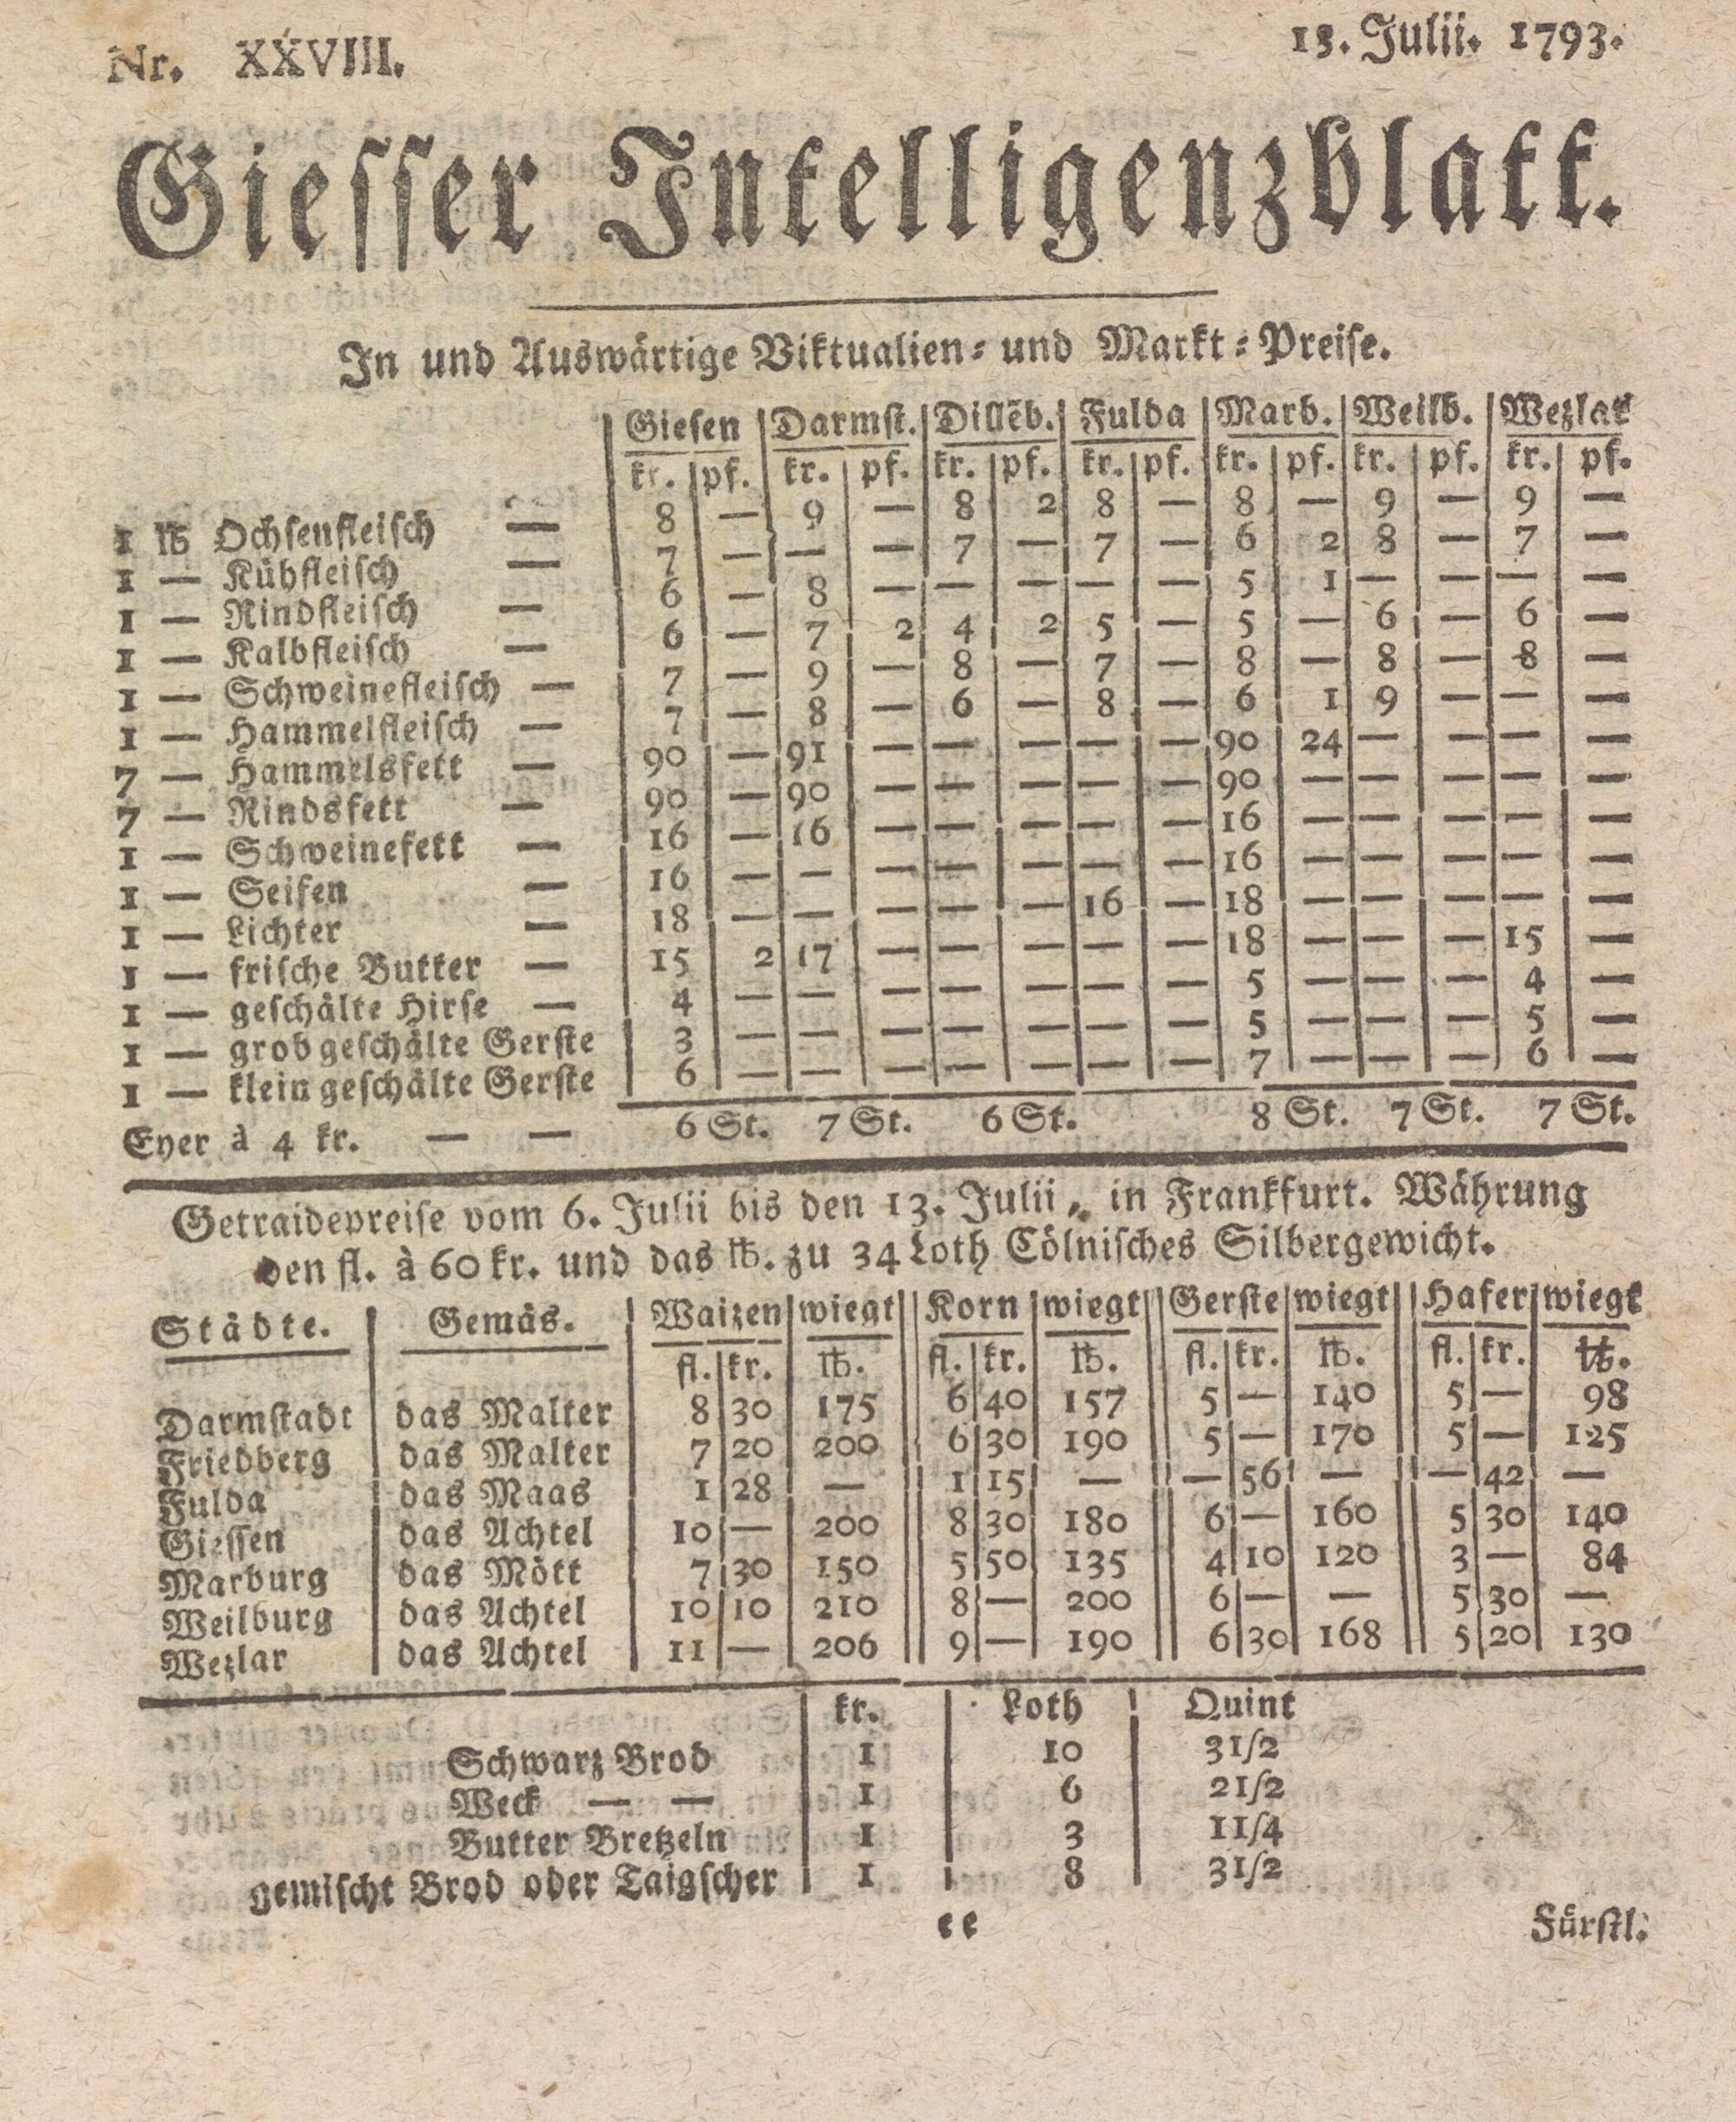 Nr. XXVIII.
13. Julii. 1793.
Giesser Intelligenzblatt.
In und Auswärtige Viktualien- und Markt-Preise.
Giesen Darmst. Dillēb. Fulda Marb. Weilb. Wezlar
kr. pf. kr. pf. kr. pf. kr. pf. kr. pf. kr. pf. kr. pf.
1 ℔ Ochsenfleisch — 8 — 9 — 8 2 8 — 8 — 9 — 9 —
1 — Kühfleisch — 7 — — — 7 — 7 — 6 2 8 — 7 —
1 — Rindfleisch — 6 — 8 — — — — — 5 1 — — — —
1 — Kalbfleisch — 6 — 7 2 4 2 5 — 5 — 6 — 6 —
1 — Schweinefleisch — 7 — 9 — 8 — 7 — 8 — 8 — 8 —
1 — Hammelfleisch — 7 — 8 — 6 — 8 — 6 1 9 — — —
7 — Hammelsfett — 90 — 91 — — — — — 90 24 — — — —
7 — Rindsfett — 90 — 90 — — — — — 90 — — — — —
1 — Schweinefett — 16 — 16 — — — — — 16 — — — — —
1 — Seifen — 16 — — — — — — — 16 — — — — —
1 — Lichter — 18 — — — — — 16 — 18 — — — — —
1 — frische Butter — 15 2 17 — — — — — 18 — — — 15 —
1 — geschälte Hirse — 4 — — — — — — — 5 — — — 4 —
1 — grob geschälte Gerste 3 — — — — — — — 5 — — — 5 —
1 — klein geschälte Gerste 6 — — — — — — — 7 — — — 6 —
Eyer à 4 kr. — — 6 St. 7 St. 6 St. 8 St. 7 St. 7 St.
Getraidepreise vom 6. Julii bis den 13. Julii, in Frankfurt. Währung
den fl. à 60 kr. und das ℔. zu 34 Loth Cölnisches Silbergewicht.
Städte. Gemäs. Waizen wiegt Korn wiegt Gerste wiegt Hafer wiegt
fl. kr. ℔. fl. kr. ℔. fl. kr. ℔. fl. kr. ℔.
Darmstadt das Malter 8 30 175 6 40 157 5 — 140 5 — 98
Friedberg das Malter 7 20 200 6 30 190 5 — 170 5 — 125
Fulda das Maas 1 28 — 1 15 — — 56 — — 42 —
Giessen das Achtel 10 — 200 8 30 180 6 — 160 5 30 140
Marburg das Mött 7 30 150 5 50 135 4 10 120 3 — 84
Weilburg das Achtel 10 10 210 8 — 200 6 — — 5 30 —
Wezlar das Achtel 11 — 206 9 — 190 6 30 168 5 20 130
kr. Loth Quint
Schwarz Brod 1 10 3 1/2
Weck — — 1 6 2 1/2
Butter Bretzeln 1 3 1 1/4
gemischt Brod oder Taigscher 1 8 3 1/2
ee
Fürstl.